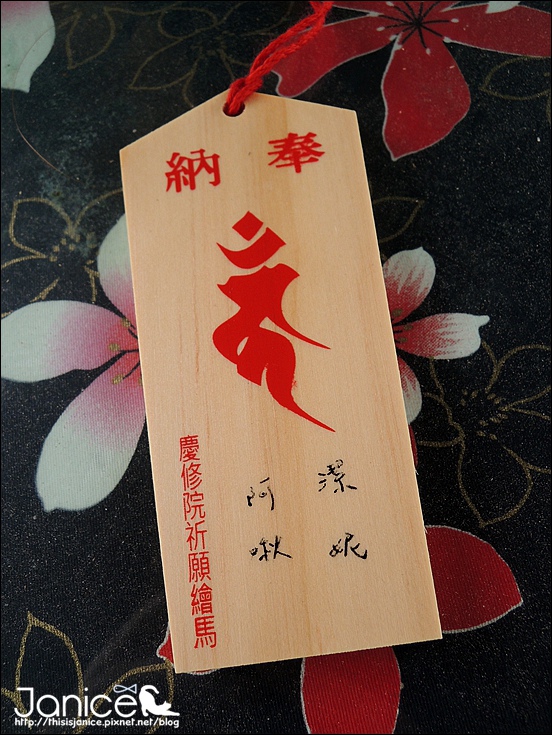 奉納
慶修院祈願繪馬
潔妮
阿啾
Janice
http://thisisjanice.pixnet.net/blog